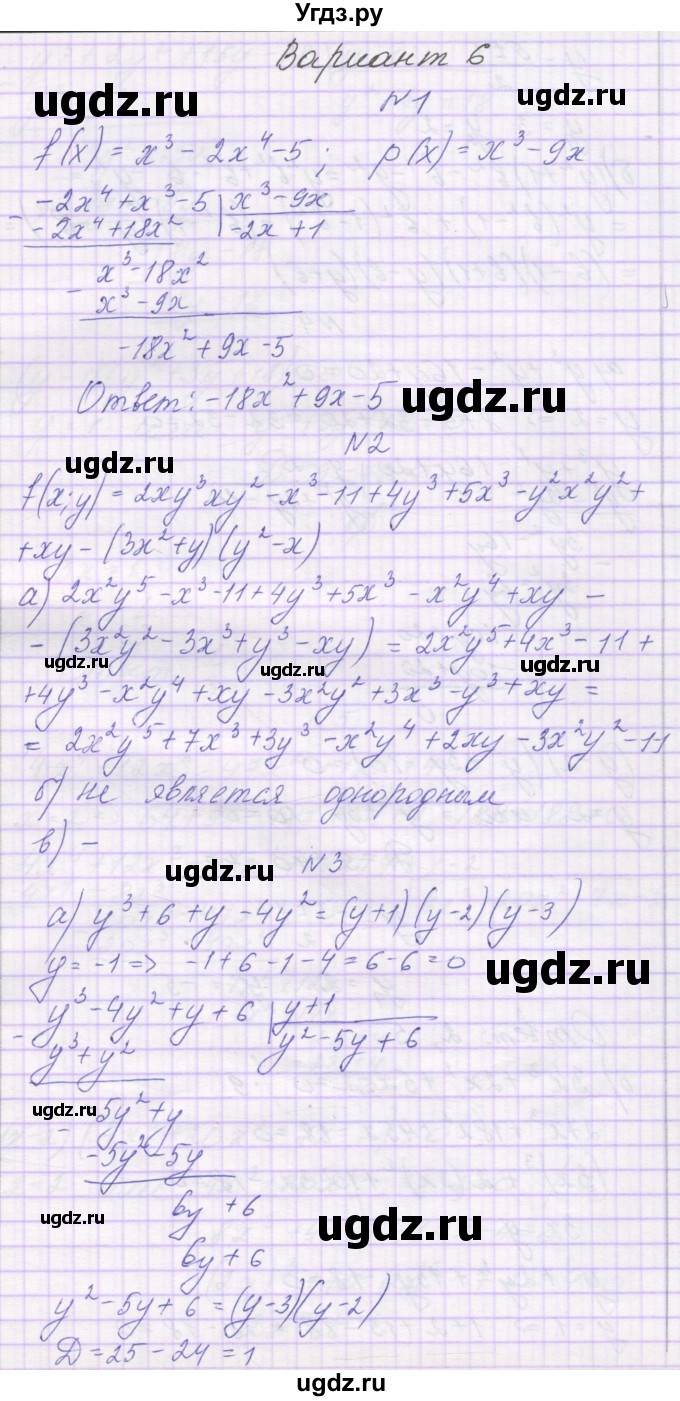 Угдз.ру
Вариант 6
ugdz.ru ugdz.ru
№1
f(x) = x³ - 2x⁴ - 5; p(x) = x³ - 9x
-2x⁴ + x³ - 5 | x³ - 9x
-2x⁴ + 18x² | -2x + 1
x³ - 18x²
x³ - 9x
-18x² + 9x - 5
Ответ: -18x² + 9x - 5
ugdz.ru
№2
ugdz.ru
f(x;y) = 2xy³xy² - x³ - 11 + 4y³ + 5x³ - y²x²y² +
+ xy - (3x² + y)(y² - x)
а) 2x²y⁵ - x³ - 11 + 4y³ + 5x³ - x²y⁴ + xy -
- (3x²y² - 3x³ + y³ - xy) = 2x²y⁵ + 4x³ - 11 +
ugdz.ru ugdz.ru ugdz.ru
+ 4y³ - x²y⁴ + xy - 3x²y² + 3x³ - y³ + xy =
= 2x²y⁵ + 7x³ + 3y³ - x²y⁴ + 2xy - 3x²y² - 11
б) не является однородным
в) -
ugdz.ru
№3
а) y³ + 6 + y - 4y² = (y+1)(y-2)(y-3)
y = -1 => -1 + 6 - 1 - 4 = 6 - 6 = 0
ugdz.ru
y³ - 4y² + y + 6 | y+1
y³ + y² | y² - 5y + 6
ugdz.ru
- 5y² + y
-5y² - 5y
6y + 6
ugdz.ru ugdz.ru
6y + 6
y² - 5y + 6 = (y-3)(y-2)
Д = 25 - 24 = 1
ugdz.ru